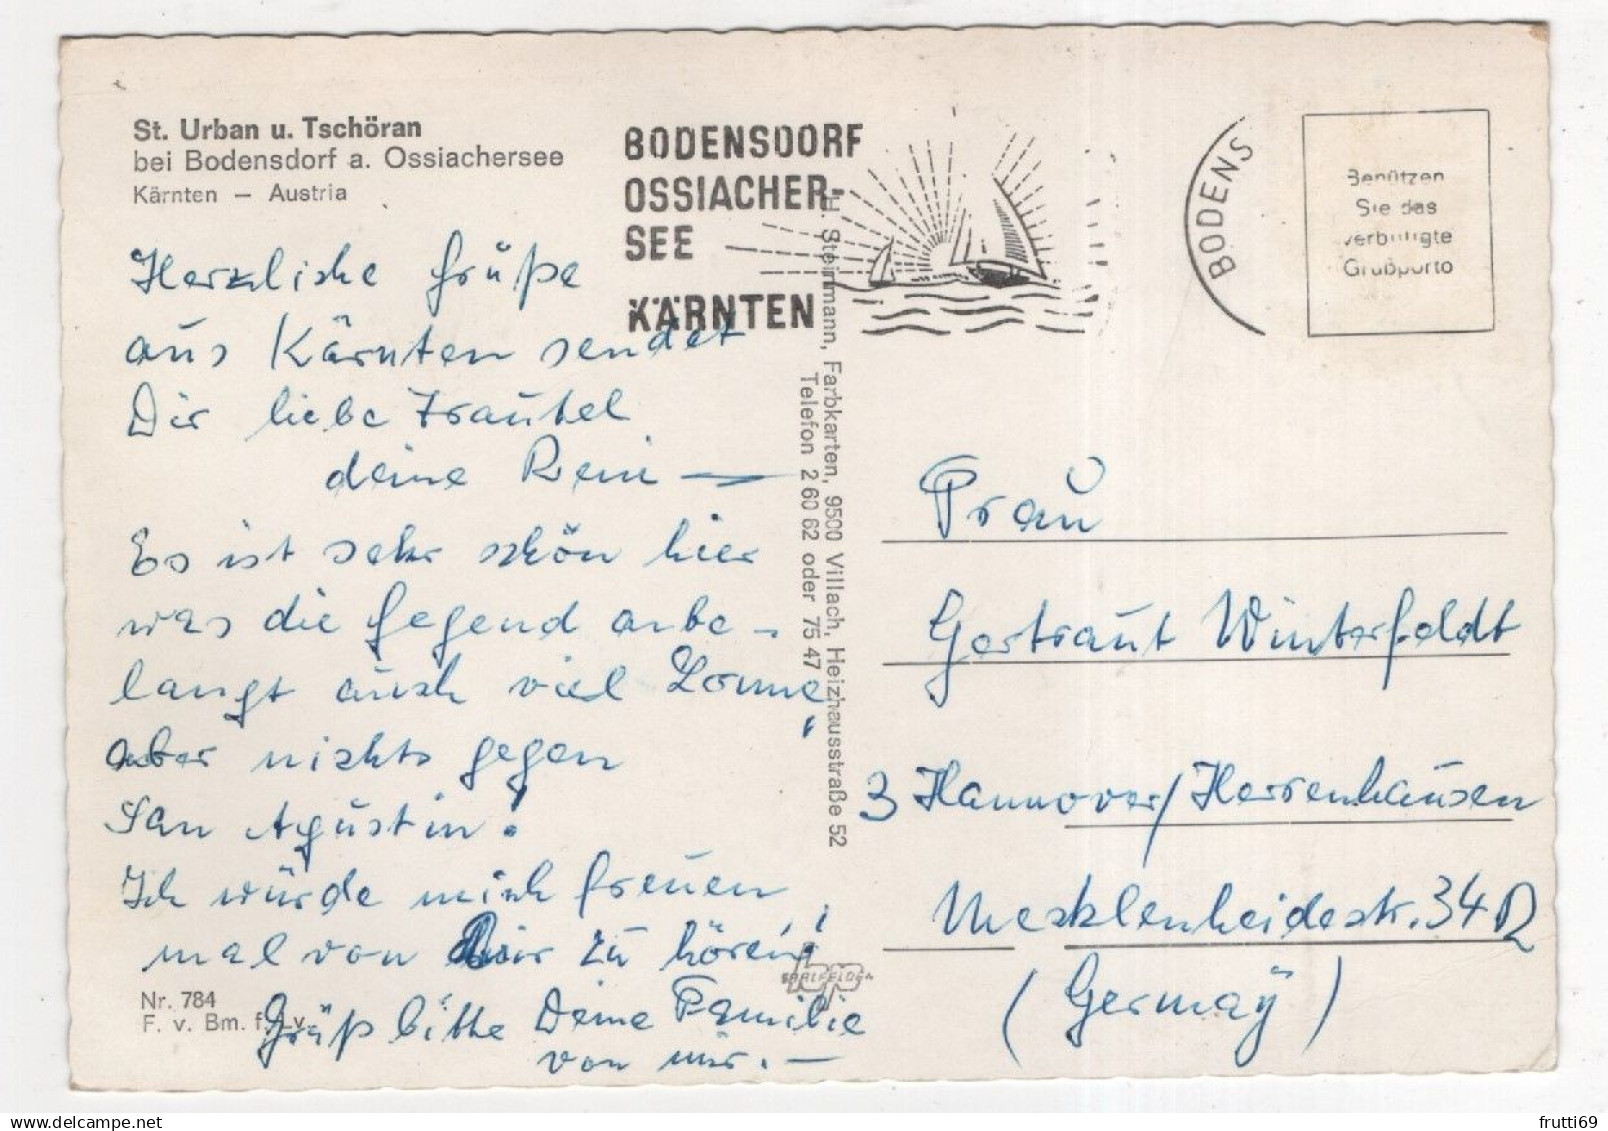 St. Urban u. Tschöran
bei Bodensdorf a. Ossiachersee
Kärnten – Austria
BODENSDORF
OSSIACHER-
SEE
KÄRNTEN
BODENS
Benützen
Sie das
verbilligte
Grußporto
Herzliche Grüße
aus Kärnten sendet
Dir liebe Trautel
deine Reni —
Es ist sehr schön hier
was die Gegend anbe-
langt auch viel Sonne,
aber nichts gegen
San Agustin!
Ich würde mich freuen
mal von Dir zu hören!
Grüß bitte Deine Familie
von mir. —
Nr. 784
F. v. Bm. f.
H. Steinmann, Farbkarten, 9500 Villach, Heizhausstraße 52
Telefon 2 60 62 oder 75 47
Frau
Gertraut Winterfeldt
3 Hannover/Herrenhausen
Mecklenheidestr. 34 D
(Germaÿ)
frutti69